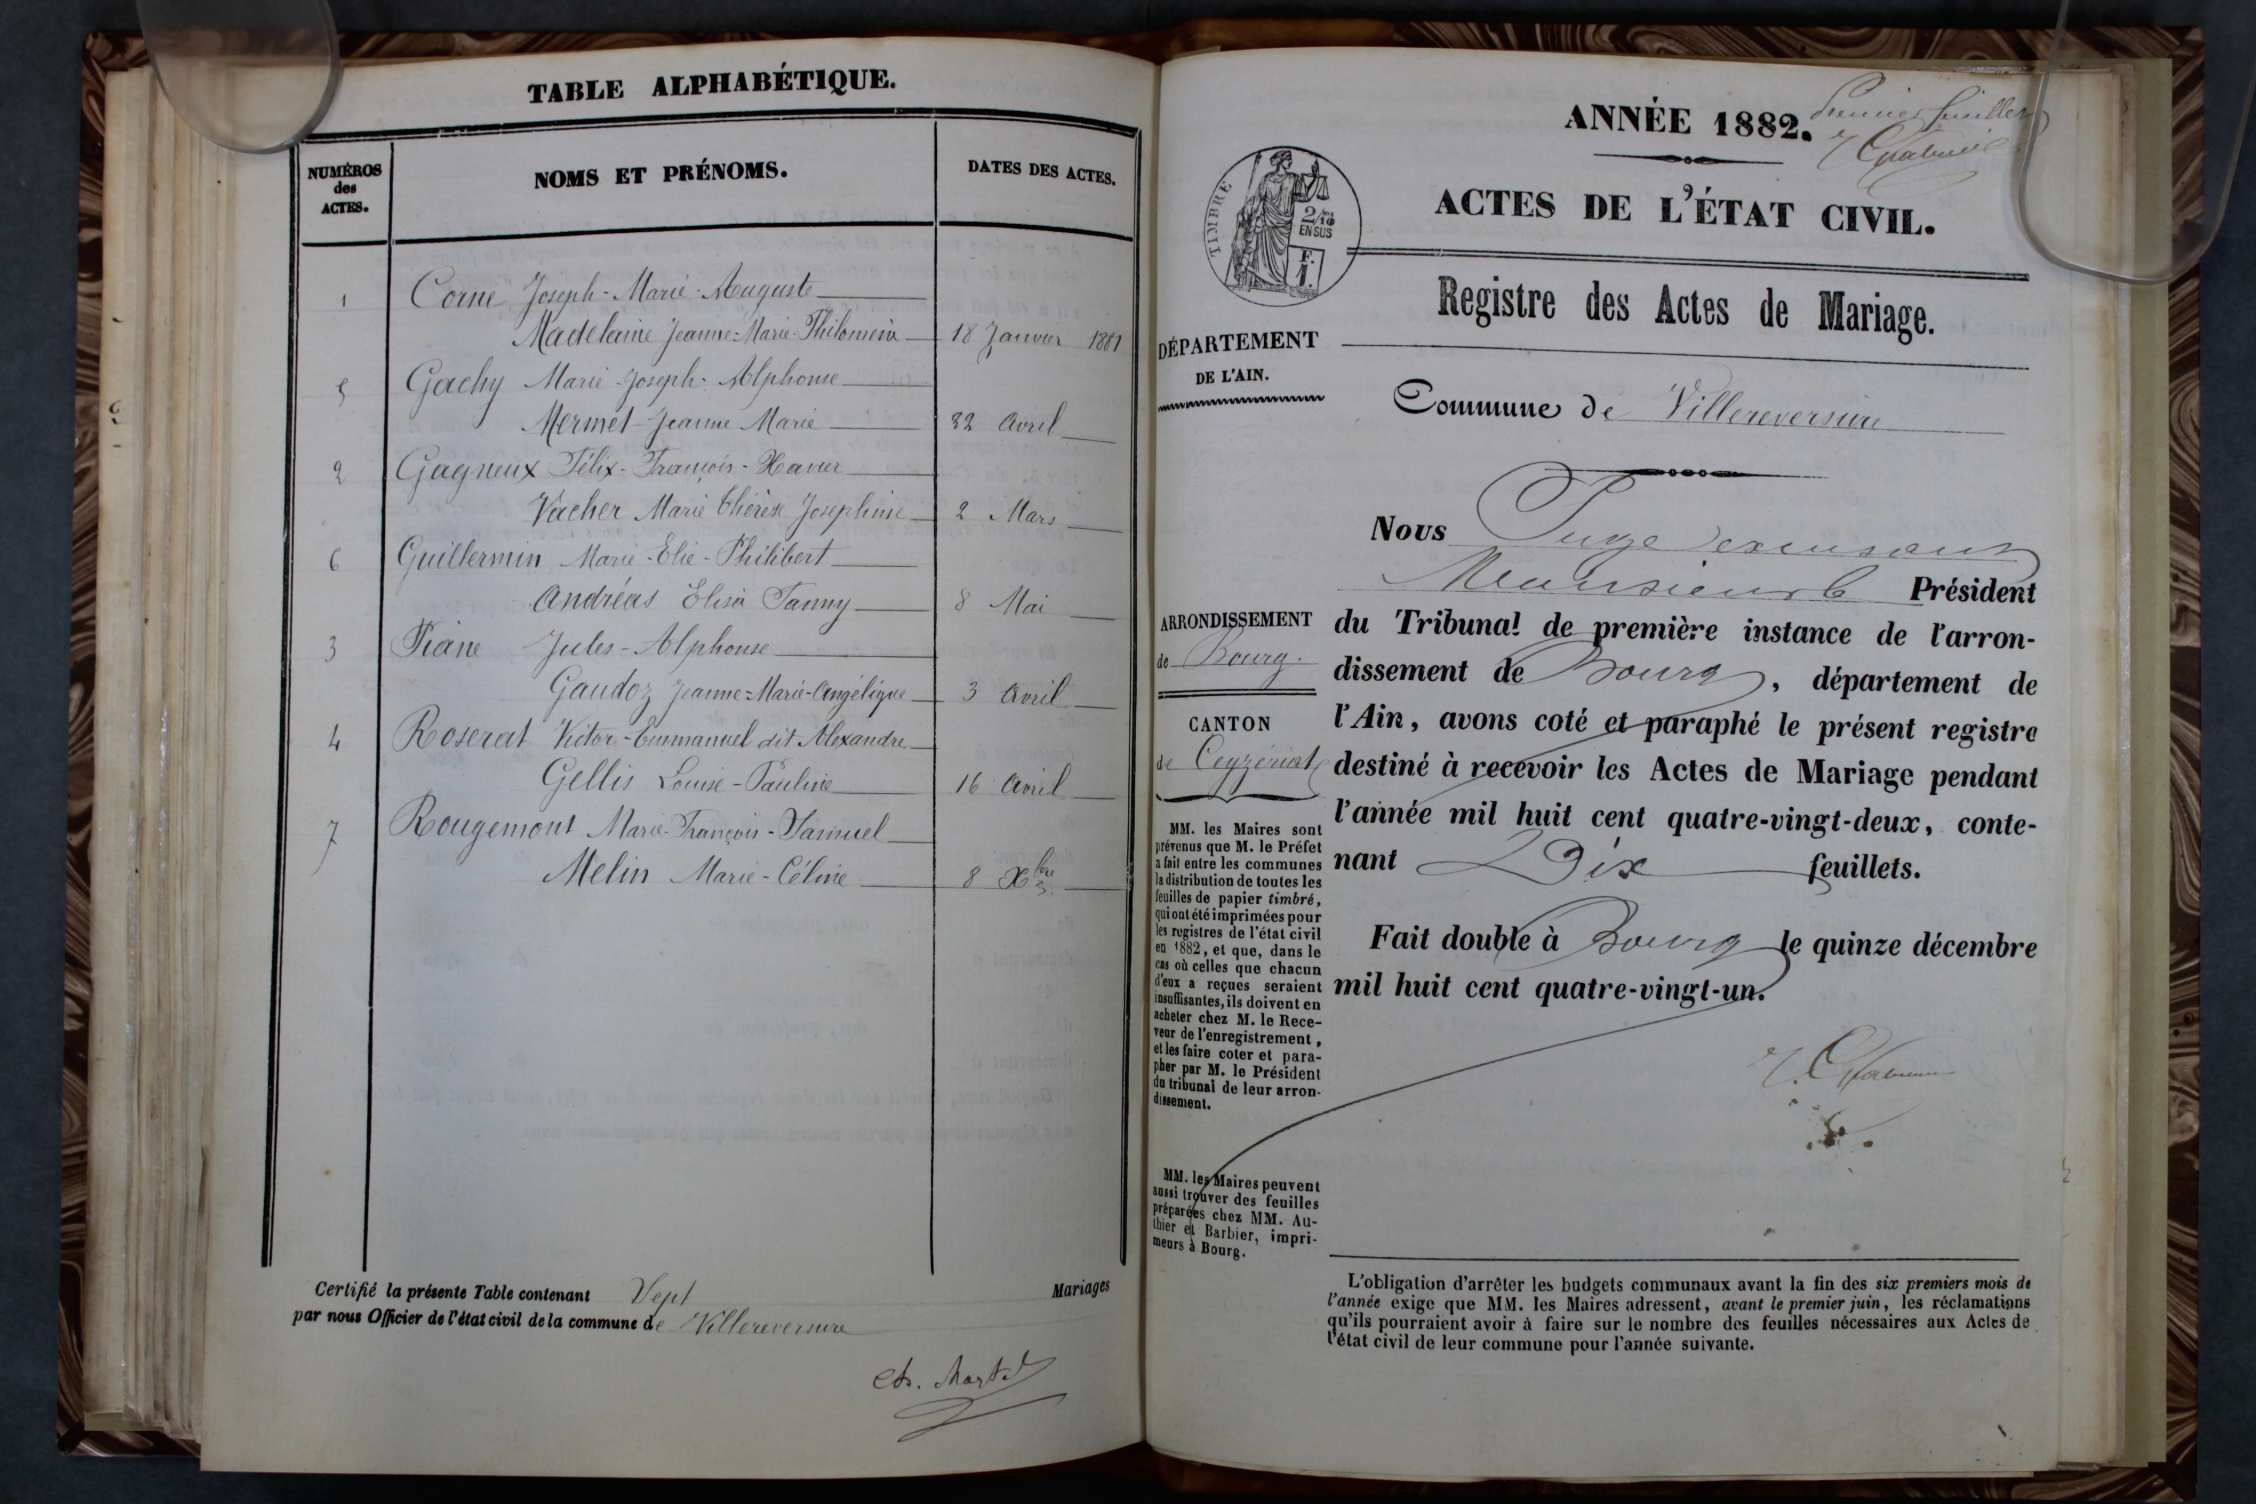 TABLE ALPHABÉTIQUE.
NUMÉROS des ACTES.
NOMS ET PRÉNOMS.
DATES DES ACTES.
1 Corne Joseph-Marie-Auguste
Madelaine Jeanne-Marie-Philomène 18 Janvier 1881
5 Gachy Marie-Joseph-Alphonse
Mermet Jeanne Marie 22 Avril
2 Gagneux Félix-François-Xavier
Vacher Marie Thérèse Joséphine 2 Mars
6 Guillermin Marie-Elie-Philibert
Andréas Elisa Fanny 8 Mai
3 Piane Jules-Alphonse
Gaudoz Jeanne-Marie-Angélique 3 Avril
4 Roserat Victor-Emmanuel dit Alexandre
Gellis Louise-Pauline 16 Avril
7 Rougemont Marie-François-Samuel
Melin Marie-Céline 8 Xbre
Certifié la présente Table contenant Sept Mariages
par nous Officier de l'état civil de la commune de Villereversure
Ch. Martel
ANNÉE 1882.
Premier feuillet
ACTES DE L'ÉTAT CIVIL.
TIMBRE
2/10
EN SUS
F.
1.
Registre des Actes de Mariage.
DÉPARTEMENT
DE L'AIN.
Commune de Villereversure
Nous Juge
Monsieur le Président
du Tribunal de première instance de l'arron-
dissement de Bourg, département de
l'Ain, avons coté et paraphé le présent registre
destiné à recevoir les Actes de Mariage pendant
l'année mil huit cent quatre-vingt-deux, conte-
nant Dix feuillets.
Fait double à Bourg le quinze décembre
mil huit cent quatre-vingt-un.
ARRONDISSEMENT
de Bourg.
CANTON
de Ceyzériat
MM. les Maires sont
prévenus que M. le Préfet
a fait entre les communes
la distribution de toutes les
feuilles de papier timbré,
qui ont été imprimées pour
les registres de l'état civil
en 1882, et que, dans le
cas où celles que chacun
d'eux a reçues seraient
insuffisantes, ils doivent en
acheter chez M. le Rece-
veur de l'enregistrement,
et les faire coter et para-
pher par M. le Président
du tribunal de leur arron-
dissement.
MM. les Maires peuvent
aussi trouver des feuilles
préparées chez MM. Au-
thier et Barbier, impri-
meurs à Bourg.
L'obligation d'arrêter les budgets communaux avant la fin des six premiers mois de
l'année exige que MM. les Maires adressent, avant le premier juin, les réclamations
qu'ils pourraient avoir à faire sur le nombre des feuilles nécessaires aux Actes de
l'état civil de leur commune pour l'année suivante.